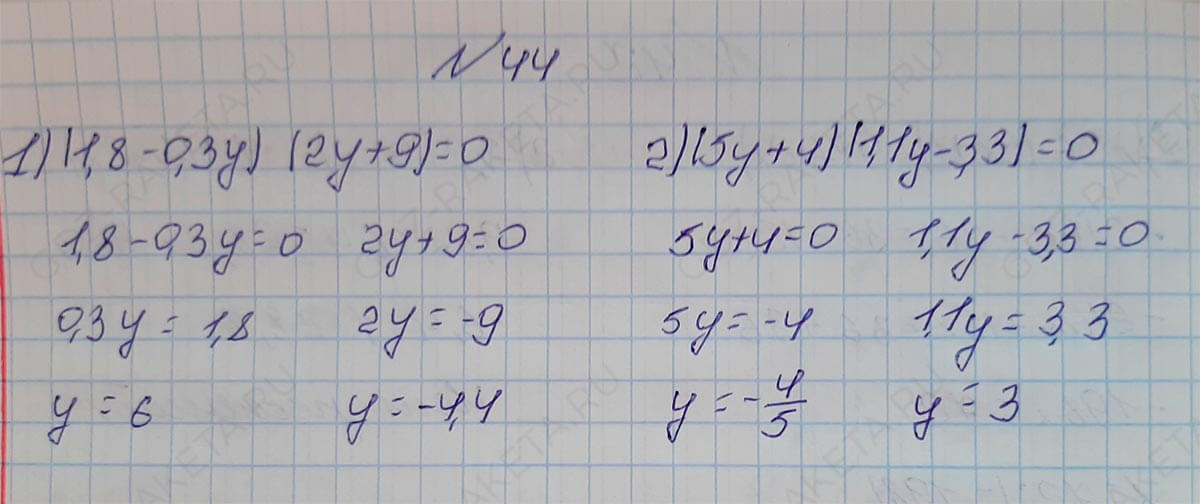 № 44
1) (1,8 - 0,3y) (2y + 9) = 0 2) (5y + 4) (1,1y - 3,3) = 0
1,8 - 0,3y = 0 2y + 9 = 0 5y + 4 = 0 1,1y - 3,3 = 0
0,3y = 1,8 2y = -9 5y = -4 1,1y = 3,3
y = 6 y = -4,4 y = -4/5 y = 3